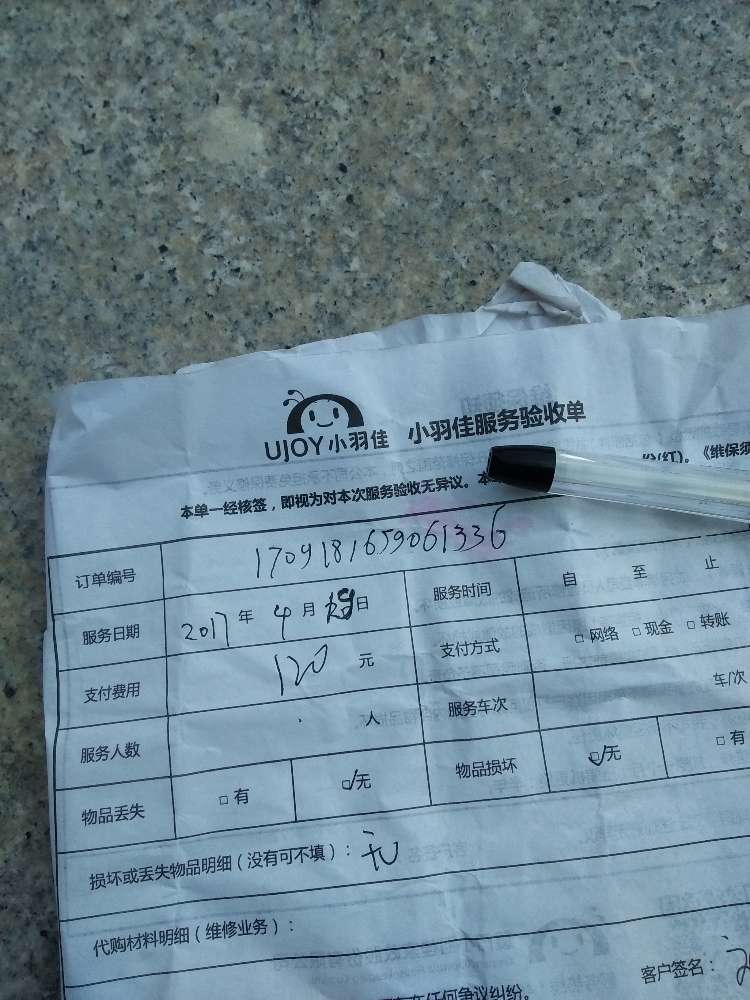 UJOY小羽佳 小羽佳服务验收单
份(红)。《维保须
本单一经核签，即视为对本次服务验收无异议。本
订单编号 1709181659061336
服务日期 2017年 4月 日 服务时间 自 至 止
支付费用 120 元 支付方式 □网络 □现金 □转账
服务人数 人 服务车次 车/次
物品丢失 □有 ☑无 物品损坏 ☑无 □有
损坏或丢失物品明细（没有可不填）：无
代购材料明细（维修业务）：
客户签名：
任何争议纠纷。